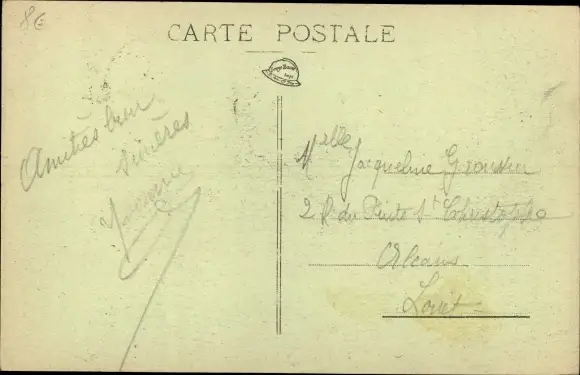 8€
CARTE POSTALE
Amitiés bien
sincères
Yvonne
Mlle Jacqueline
2 R. du Puits St Christophe
Orléans
Loiret